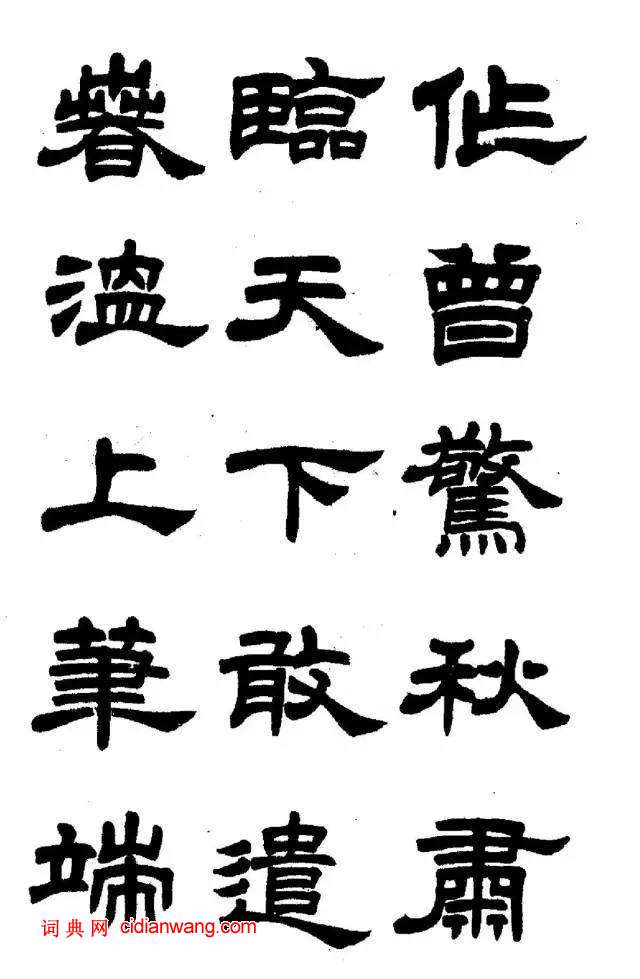 作曾驚秋肅
臨天下敢遣
春溫上筆端
词典网 cidianwang.com